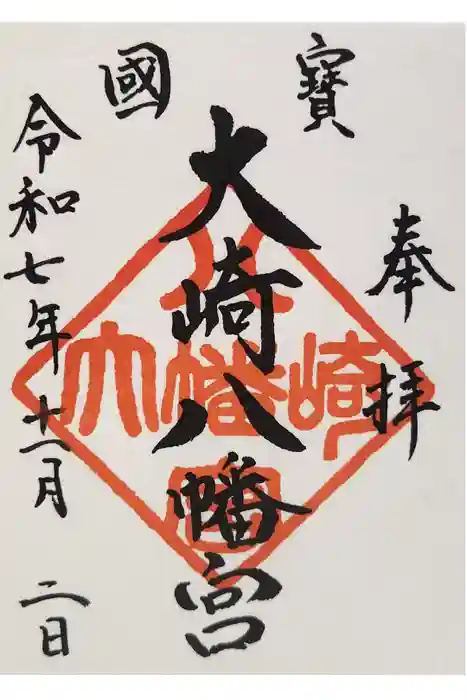 國寶
奉拝
大崎八幡宮
令和七年十一月二日
大崎八幡宮